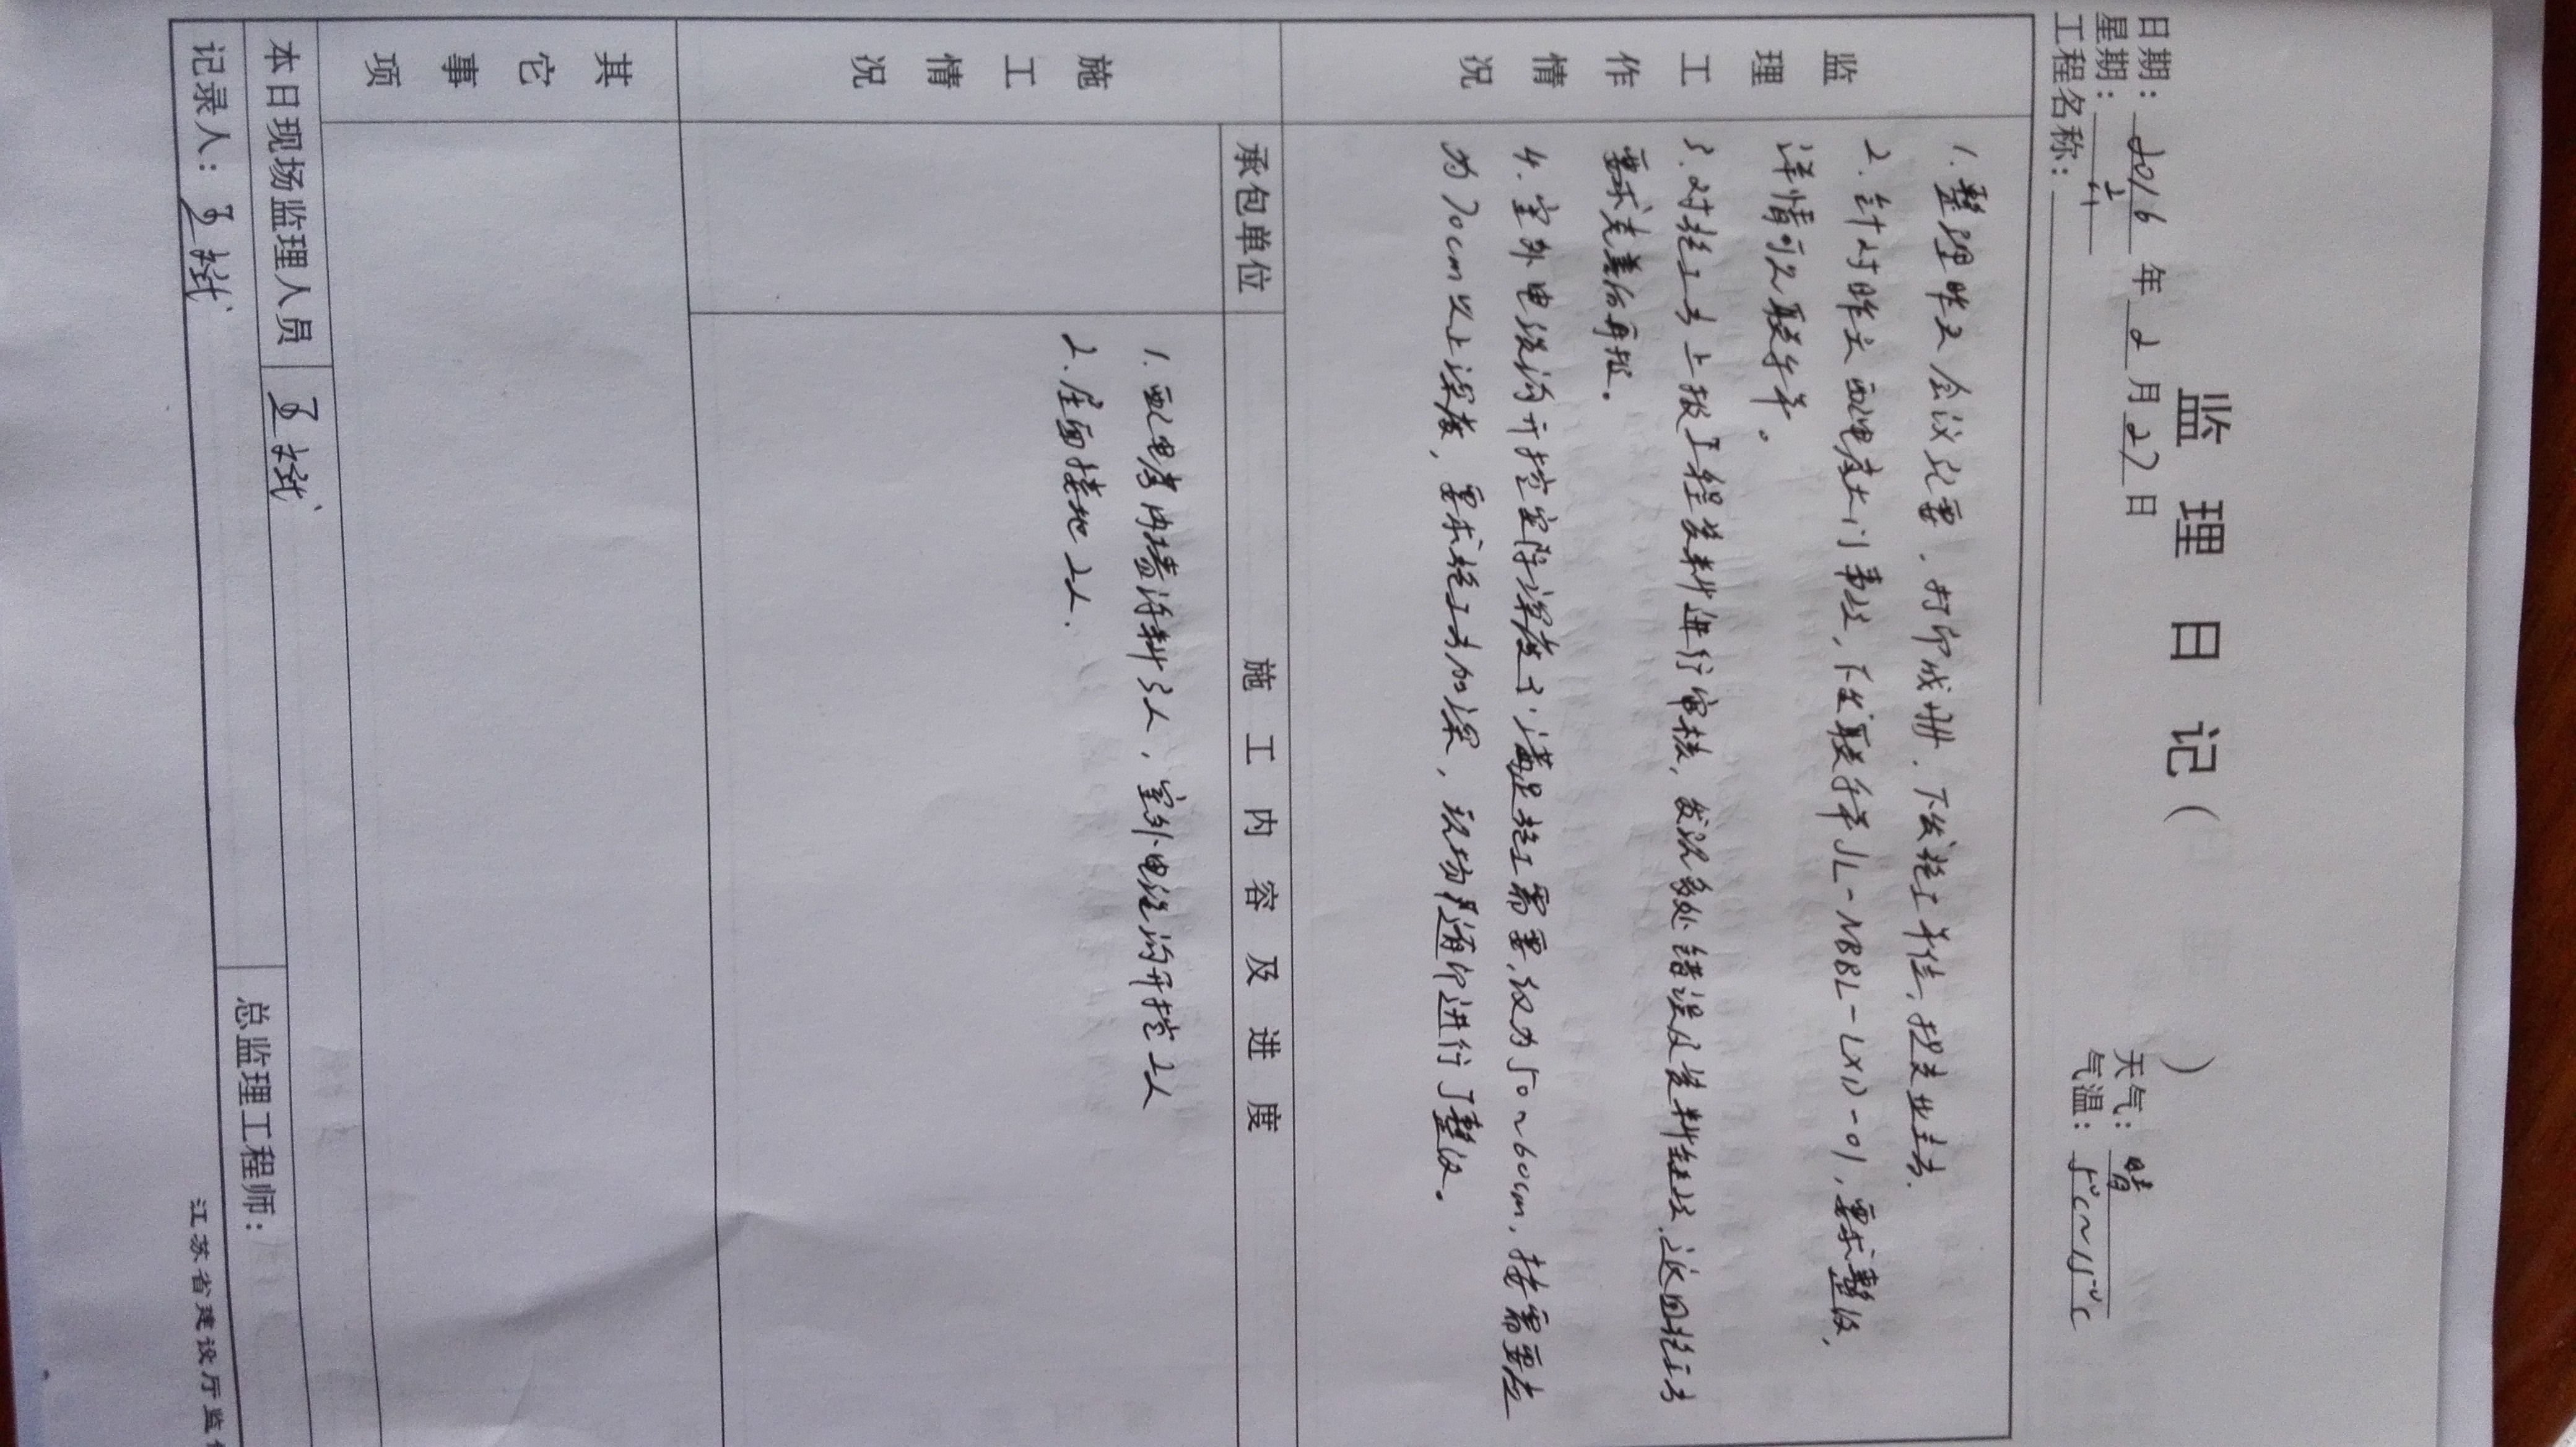 监理日记（　　　）
日期：2016年2月27日　天气：晴
星期：六　气温：5℃~15℃
工程名称：
监理工作情况
1. 整理昨天会议纪要，打印成册，下发施工单位，报送业主方.
2. 针对昨天配电房大门事故，下发联系单JL-NBBL-LXD-01，要求整改，
详情可见联系单。
3. 对施工方上报工程资料进行审核，发现多处错误及资料缺少，返回施工方
要求完善后再报。
4. 室外电缆沟开挖实际深度不满足施工需要，仅为50~60cm，按需要应
为70cm以上深度，要求施工方加深，现场随即进行了整改。
施工情况
承包单位　施工内容及进度
1. 配电房内墙涂料3人，室外电缆沟开挖2人
2. 屋面接地2人.
其它事项
本日现场监理人员
记录人：　总监理工程师：
江苏省建设厅监